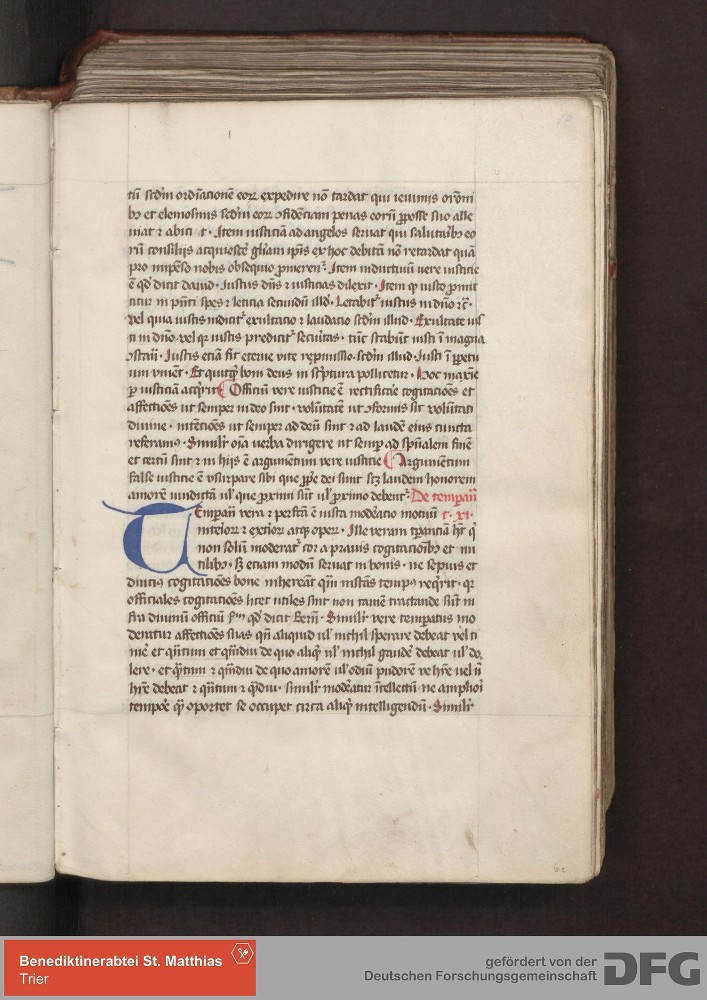 tū scdm̄ ordīacionē eoꝝ expedire nō tardat qui ieiuniis oroīni
bꝫ et elemosinis scdm̄ eoꝝ ꝯfidēciam penas eorū ꝓposse suo alle
uiat ⁊ abicit · Item iusticiā ad angelos seruat qui salutaribꝫ eo
rū consiliis acquiescēs gliam ip̄is ex hoc debitā nō retardat quā
pro impēso nobis obsequio ꝓmeren̄t᷑. Item inductiuū uere iusticie
ē qd̓ dicit dauid · Iustus dn̄s ⁊ iusticias dilexit · Item qꝫ iusto ꝓmit
titur in pn̄ti spes ⁊ leticia secundū illd̓ · Letabit᷑ iustus in dn̄o ⁊c̄ ·
Vel quia iustis indicit᷑ exultacio ⁊ laudacio scdm̄ illud · Exultate ius
ti in dn̄o · vel qꝫ iustis predicit᷑ securitas · tūc stabūt iusti ī magna
ꝯstan̄ · Iustis etiā fit eterne vite repmissio · scdm̄ illud · Iusti ī ꝑpetu
um viuēt · Et quitqͥd boni deus in sc̓ptura pollicetur · hoc maxīe
ꝑ iusticiā acq̓rit᷑ Officiū vere iusticie ē rectificare cogitacōes et
affectōes ut semper in deo sint · volūtatē ut ꝯformis sit volūtati
diuine · intēcōes ut semper ad deū sint ⁊ ad laudē eius cuncta
referam᷒ · Similit̓ oīa uerba dirigere ut semꝑ ad spūalem finē
et certū sint ⁊ in hijs ē argumentum vere iusticie Argumentum
false iusticie ē vsurpare sibi que ꝓpe dei sunt scꝫ laudem honorem
amorē uindictā ul̓ que ꝓximi sūt ul̓ ꝓximo debent᷑ · De temꝑan̄
Temperan̄ vera ⁊ perfcā ē iusta moderacio motuū c · xi ·
interioꝝ ⁊ exterioꝝ atqꝫ operū · Ille veram tꝑanciā hꝫ qͥ
non solū moderat᷑ cor a prauis cogitacionibꝫ et inu
tilibꝫ · sꝫ etiam modū seruat in bonis · ne sepius et
diuciꝰ cogitacōes bone inhereāt qm̄ instās tempꝰ req̓rit · qꝛ
officiales cogitacōes licet utiles sint non tamē tractande sūt in
fra diuinū officiū scdm̄ qd̓ dicit Bern̄ · Similit̓ vere temperatus mo
deratur affectōes suas qn̄ aliquid ul̓ nichil sperare debeat vel ti
mē et qn̄tum et qm̄diu de quo aliqͥd ul̓ nichil gaudē debeat ul̓ do
lere · et qn̄tum ⁊ qm̄diu de quo amorē ul̓ odiū pudorē ve hr̄e uel n̄
hr̄e debeat ⁊ qn̄tum ⁊ qm̄diu · similit̓ moderatur ītellectū ne ampliori
tempore qͣꝫ oportet se occupet circa aliqͥd intelligendū · Similit̓
Benediktinerabtei St. Matthias
Trier
gefördert von der
Deutschen Forschungsgemeinschaft
DFG